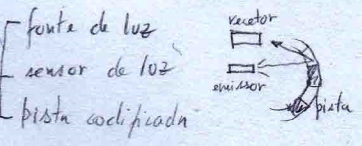 fonte de luz
sensor de luz
pista codificada
recetor
emissor
pista